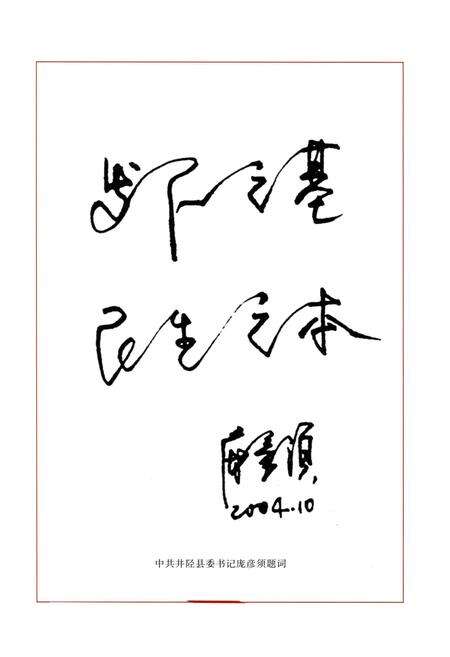 之基
民生之本
庞彦须
2004.10
中共井陉县委书记庞彦须题词